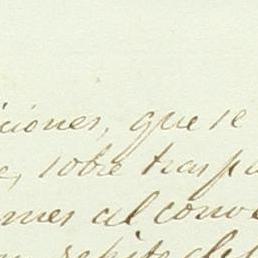 iciones, que se
e, sobre traspa
rmes al conve